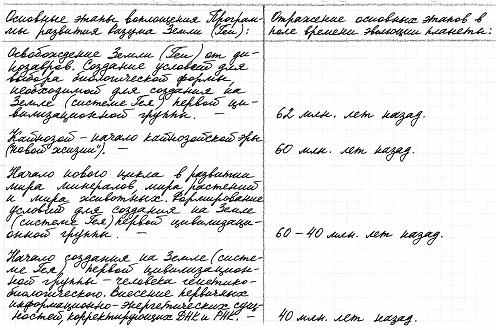 Основные этапы воплощения Програм-
мы развития разума Земли (Геи):
Отражение основных этапов в
поле времени эволюции планеты:
Освобождение Земли (Геи) от ди-
нозавров. Создание условий для
выбора биологической формы,
необходимой для создания на
Земле (системе Гея) первой ци-
вилизационной группы. —
62 млн. лет назад.
Кайнозой – начало кайнозойской эры
("новой жизни"). —
60 млн. лет назад.
Начало нового цикла в развитии
мира минералов, мира растений
и мира животных. Формирование
условий для создания на Земле
(системе Гея) первой цивилизаци-
онной группы. —
60 – 40 млн. лет назад.
Начало создания на Земле (систе-
ме Гея) первой цивилизацион-
ной группы – человека генетико-
биологического. Внесение первичных
информационно-энергетических сущ-
ностей, корректирующих ДНК и РНК. —
40 млн. лет назад.